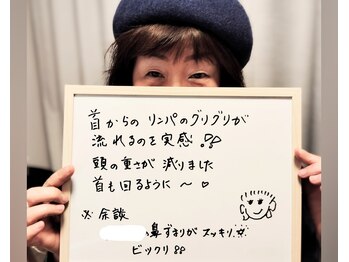 首からの リンパのグリグリが
流れるのを実感!!
頭の重さが 減りました
首も回るように 〜 ♡
※ 余談
の鼻ずまりが スッキリ
ビックリ!!